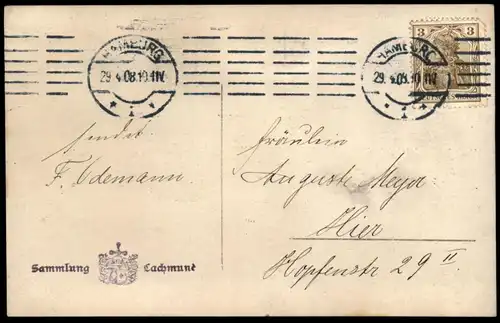 HAMBURG
29.4.08.10-11V.
* 1 v
HAMBURG
29.4.08.10-11V.
* 1 *
3 3
sendet
F. Odemann.
Fräulein
Auguste Meyer
Hier
Hopfenstr 29 II
Sammlung Cachmund